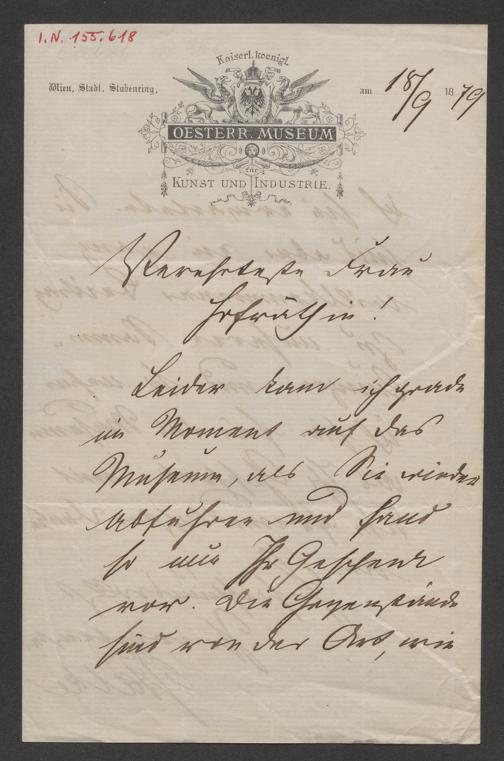 I.N. 155.618
Kaiserl. koenigl.
Wien, Stadt, Stubenring,
am 18/9 1879
OESTERR. MUSEUM
für
KUNST UND INDUSTRIE.
Verehrteste Frau
Hofräthin!
Leider kam ich grade
im Moment auf das
Museum, als Sie wieder
abfuhren und fand
so nur Ihr Geschenk
vor. Die Gegenstände
sind von der Art, wie